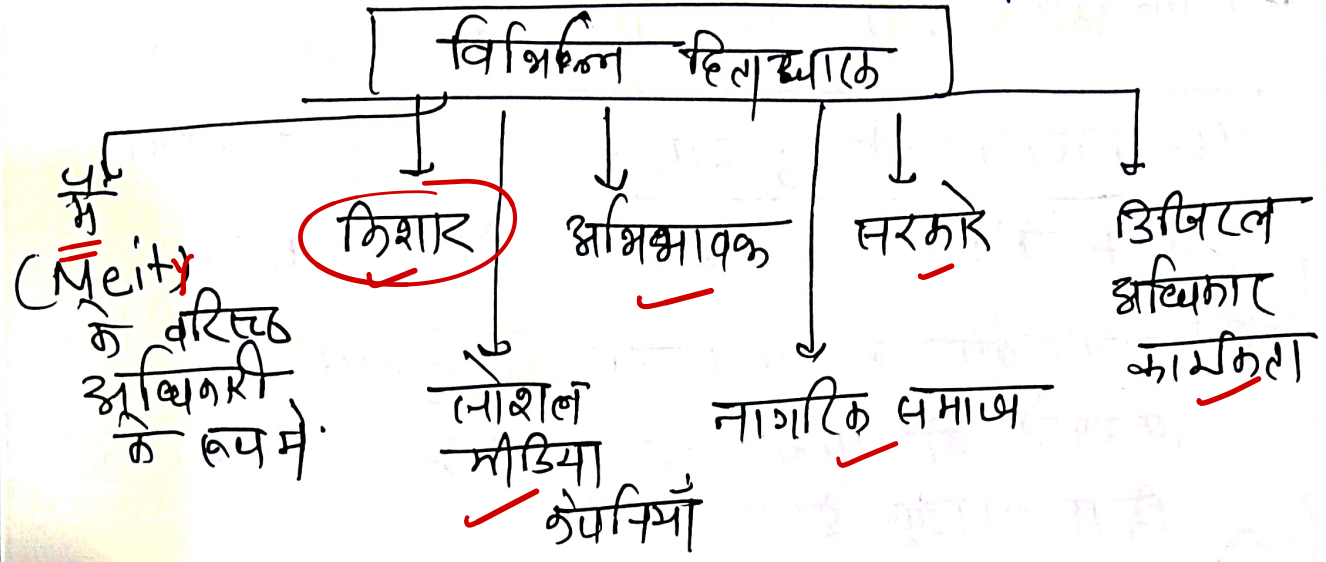 विभिन्न हितधारक
मैं
(Meity
के वरिष्ठ
अधिकारी
के रूप में
किशोर
सोशल
मीडिया
कंपनियाँ
अभिभावक
नागरिक समाज
सरकारे
डिजिटल
अधिकार
कार्यकर्ता